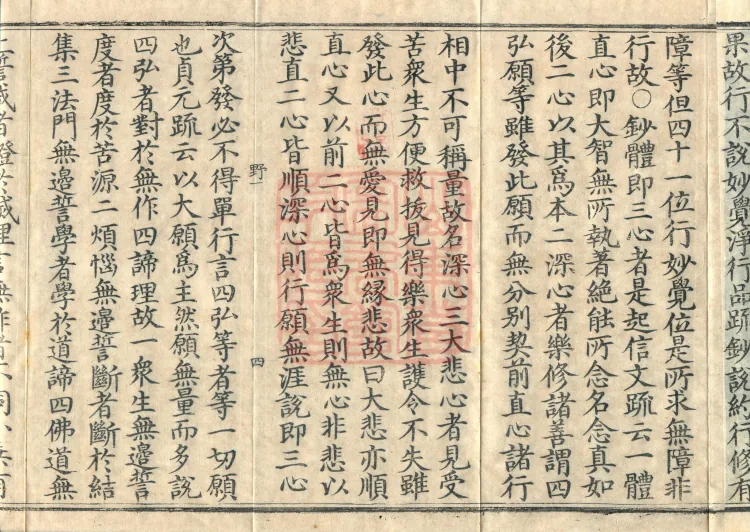 果故行不說妙覺淨行品疏鈔說約行修有
障等但四十一位行妙覺位是所求無障非
行故○鈔體即三心者是起信文疏云一體
直心即大智無所執著絶能所念名念真如
後二心以其爲本二深心者樂修諸善謂四
弘願等雖發此願而無分別契前直心諸行
相中不可稱量故名深心三大悲心者見受
苦衆生方便救拔見得樂衆生護令不失雖
發此心而無愛見即無緣悲故曰大悲亦順
直心又以前二心皆爲衆生則無心非悲以
悲直二心皆順深心則行願無涯說即三心
野一
四
次第發必不得單行言四弘等者等一切願
也貞元疏云以大願爲主然願無量而多說
四弘者對於無作四諦理故一衆生無邊誓
度者度於苦源二煩惱無邊誓斷者斷於結
集三法門無邊誓學者學於道諦四佛道無
上誓成者證於滅理言無作者不同小乘有